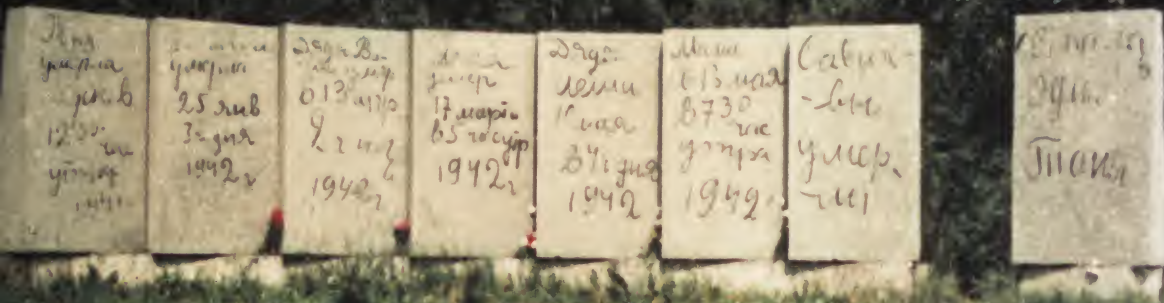 умерла
12 00 час
утра
умерла
25 янв
3ч дня
1942 г
Дядя Ва-
13 апр
2 ч ноч
1942 г
умер
17 марта
в 5 час утр
1942 г
Дядя
Леша
10 мая
в 4ч дня
1942
Мама
в 13 мая
в 7 30
час
утра
1942
Савиче-
-вы
умер.
одна
Таня